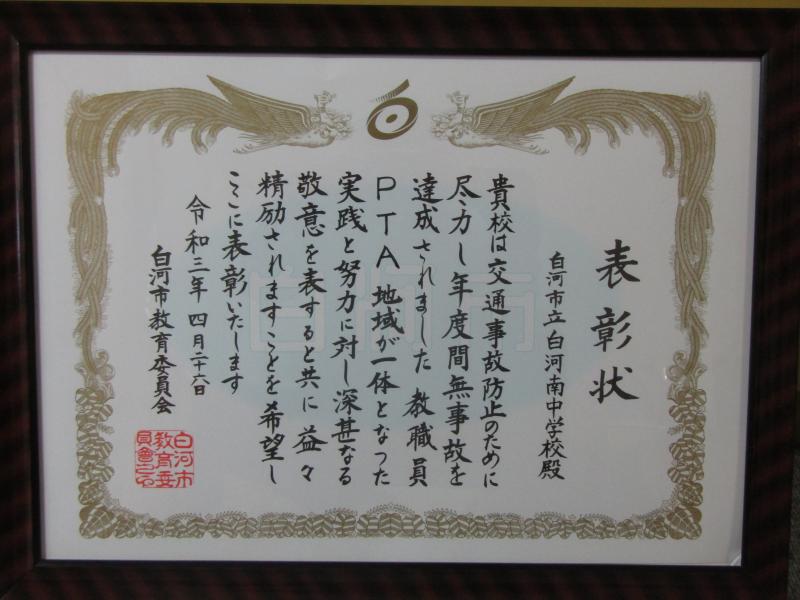 表彰状
白河市立白河南中学校殿
貴校は交通事故防止のために
尽力し年度間無事故を
達成されました 教職員
PTA 地域が一体となった
実践と努力に対し深甚なる
敬意を表すると共に益々
精励されますことを希望し
ここに表彰いたします
令和三年四月二十六日
白河市教育委員会
白河市
教育委
員會之印
白河市